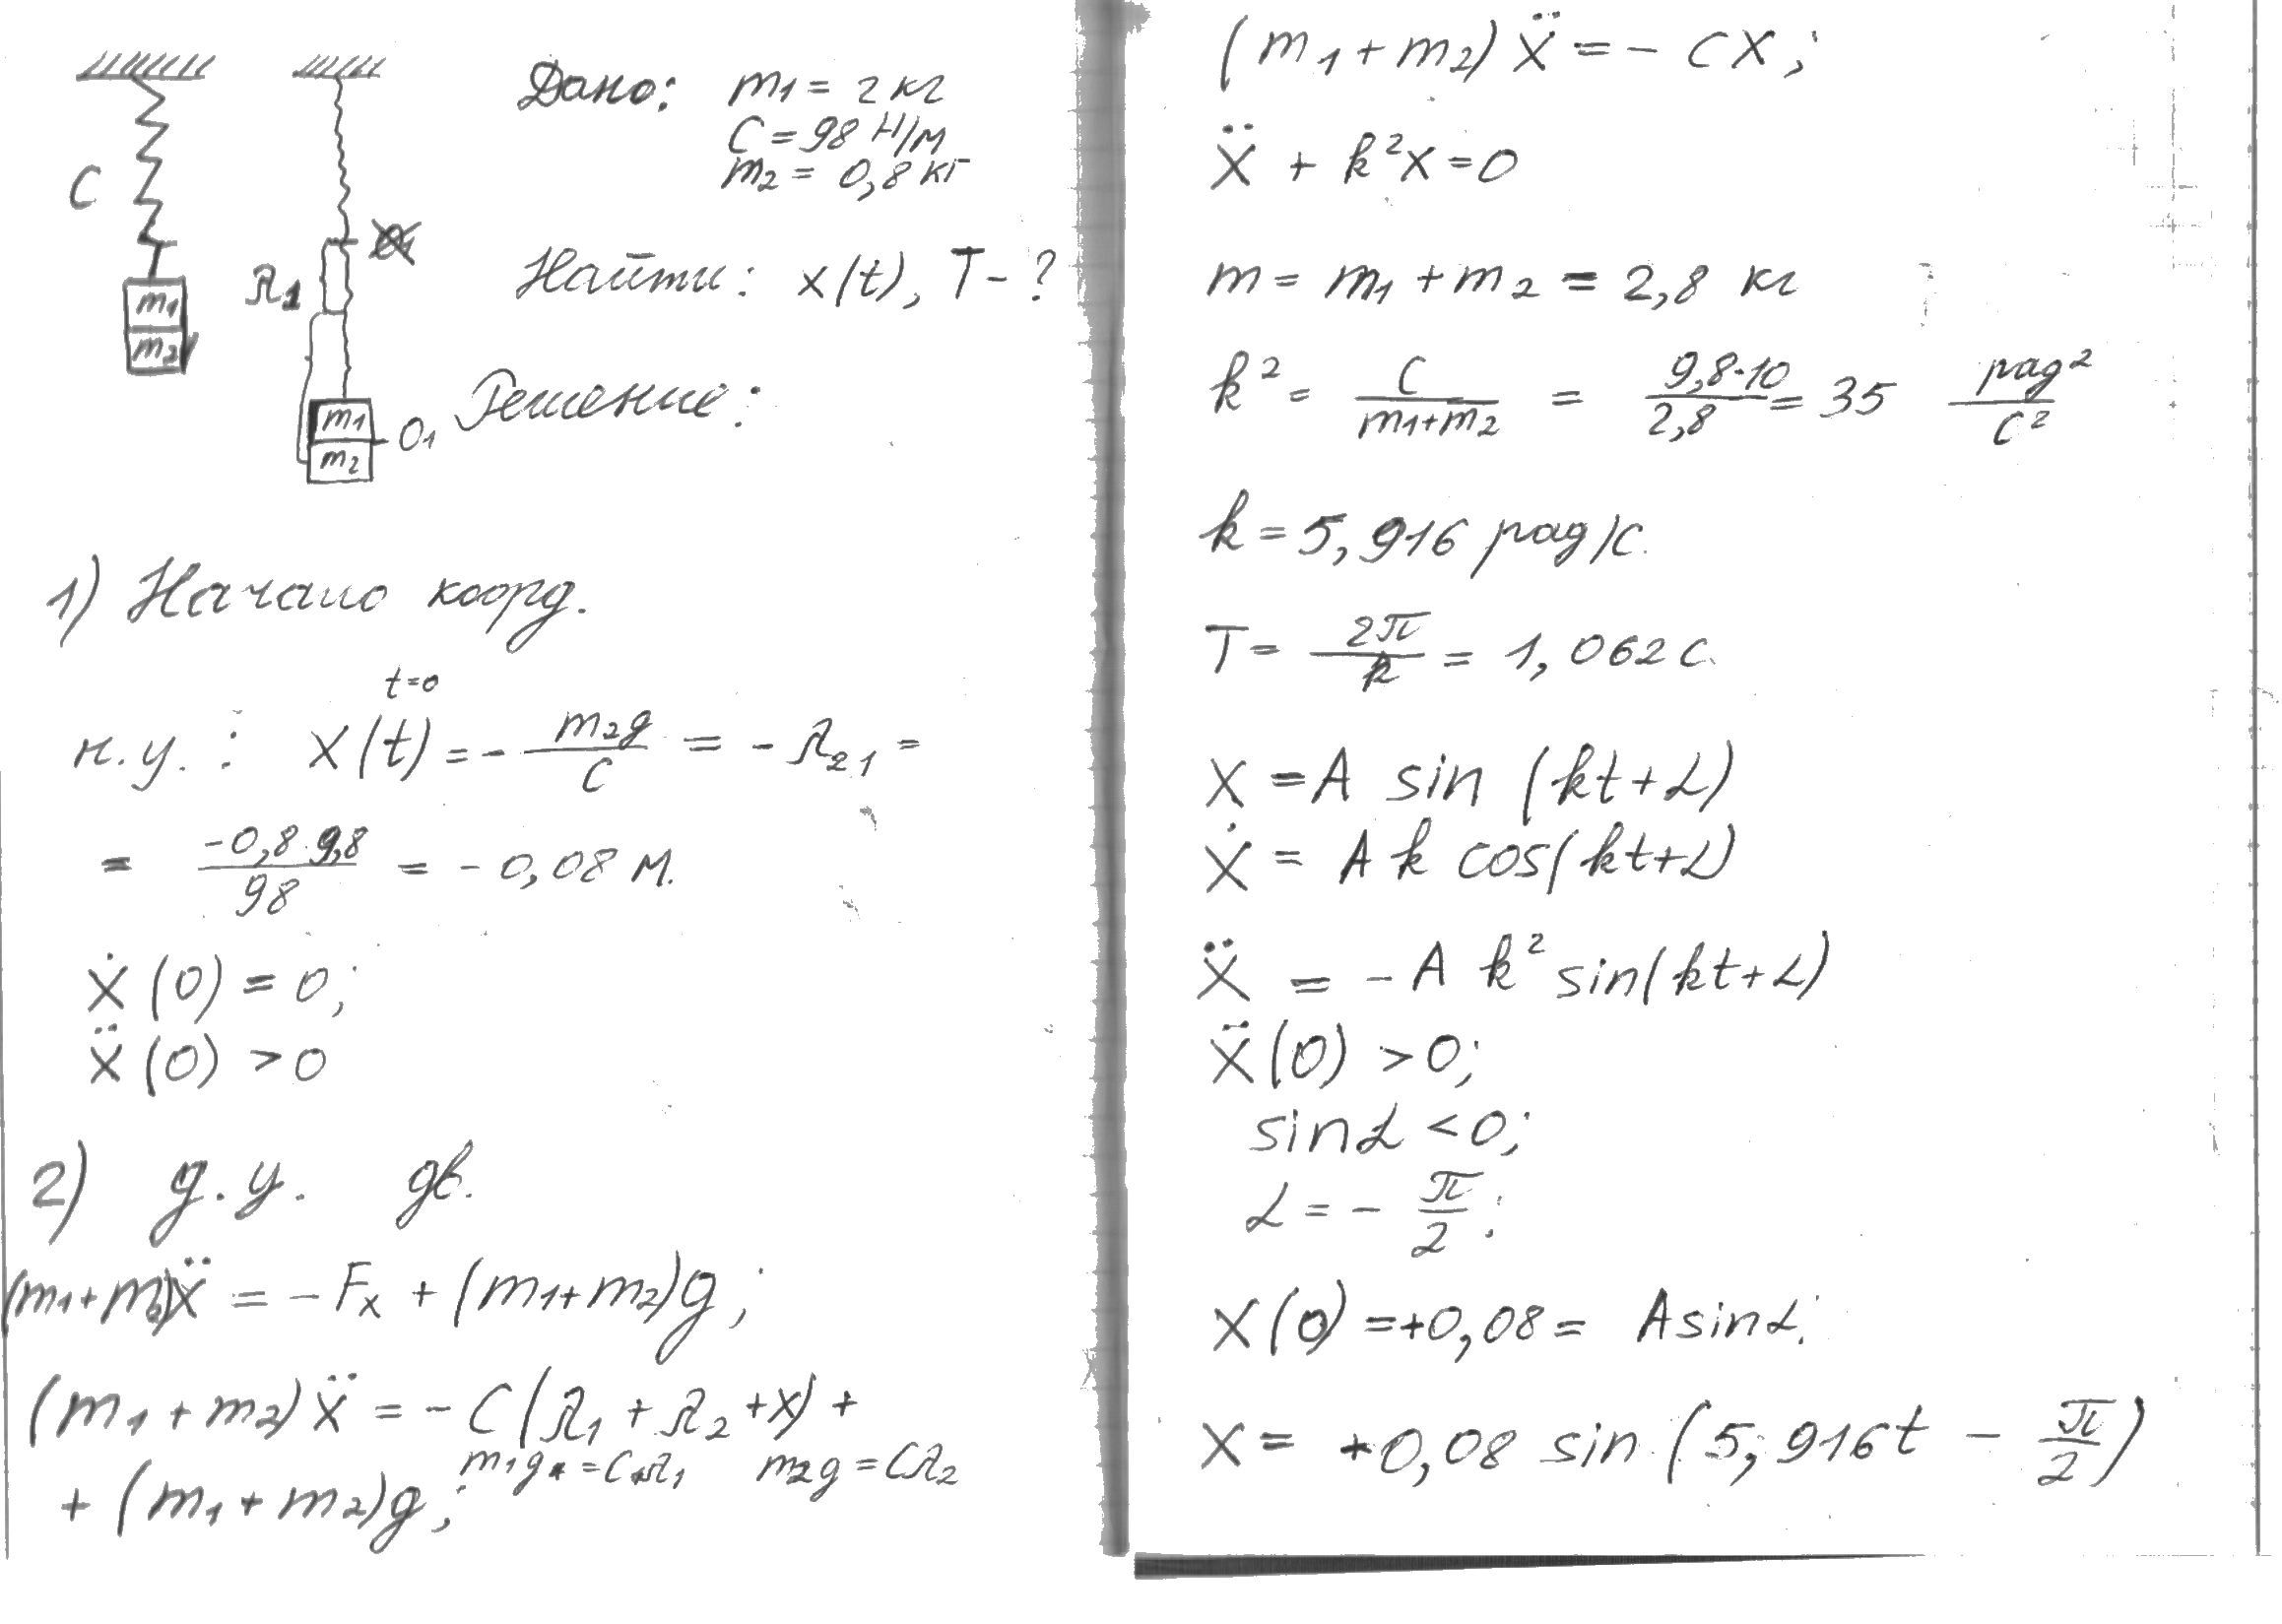 Дано: m1 = 2 кг
C = 98 Н/м
m2 = 0,8 кг
C
m1
m2
λ1
m1
m2
O1
Найти: x(t), T - ?
Решение:
1) Начало коорд.
t=0
н.у. : X(t) = - m2g/C = - λ21 =
= -0,8·9,8/98 = - 0,08 м.
Ẋ(0) = 0;
Ẍ(0) > 0
2) д.у. дв.
(m1+m2)Ẍ = - Fx + (m1+m2)g;
(m1+m2)Ẍ = - C(λ1 + λ2 + x) +
+ (m1+m2)g; m1g = Cλ1 m2g = Cλ2
(m1+m2)Ẍ = - CX;
Ẍ + k²X = 0
m = m1 + m2 = 2,8 кг
k² = C/(m1+m2) = 9,8·10/2,8 = 35 рад²/с²
k = 5,916 рад/с.
T = 2π/k = 1,062 с.
X = A sin (kt+α)
Ẋ = A k cos(kt+α)
Ẍ = - A k² sin(kt+α)
Ẍ(0) > 0;
sinα < 0;
α = - π/2;
X(0) = +0,08 = A sinα;
X = +0,08 sin (5,916t - π/2)